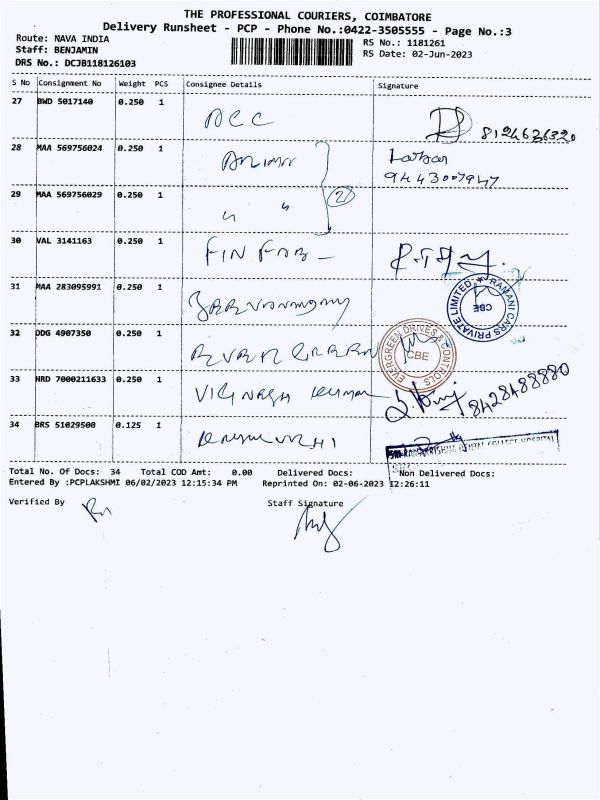 THE PROFESSIONAL COURIERS, COIMBATORE
Delivery Runsheet - PCP - Phone No.:0422-3505555 - Page No.:3
Route: NAVA INDIA
RS No.: 1181261
Staff: BENJAMIN
RS Date: 02-Jun-2023
DRS No.: DCJB118126103
S No Consignment No Weight PCS Consignee Details Signature
27 BWD 5017140 0.250 1 ACC 8124636320
28 MAA 569756024 0.250 1
9443007947
29 MAA 569756029 0.250 1 " " (2)
30 VAL 3141163 0.250 1 FIN FAB
31 MAA 283095991 0.250 1
RAMANI CARS PRIVATE LIMITED CBE
32 DDG 4907350 0.250 1
EVERGREEN DRIVES & CONTROLS CBE
33 HRD 7000211633 0.250 1 VIGNASH KUMAR 8428488880
34 BRS 51029500 0.125 1
DENTAL COLLEGE HOSPITAL
Total No. Of Docs: 34 Total COD Amt: 0.00 Delivered Docs: Non Delivered Docs:
Entered By :PCPLAKSHMI 06/02/2023 12:15:34 PM Reprinted On: 02-06-2023 12:26:11
Verified By Staff Signature